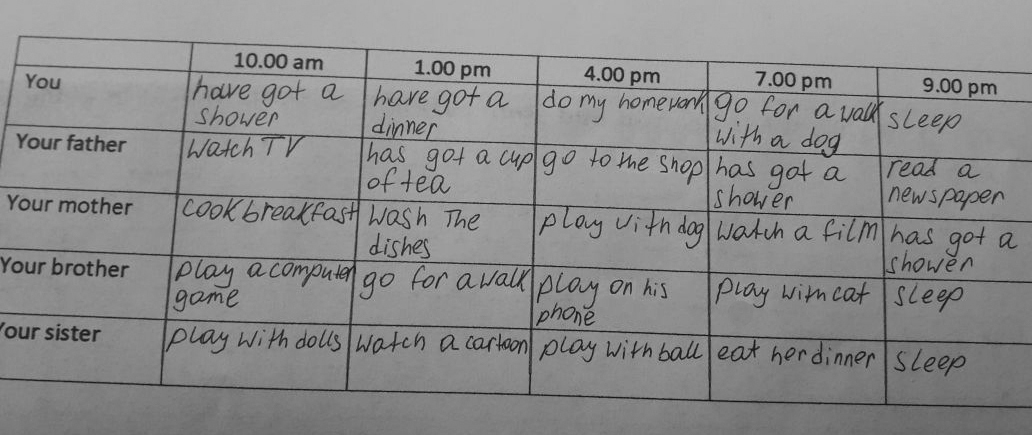 10.00 am 1.00 pm 4.00 pm 7.00 pm 9.00 pm
You have got a shower have got a dinner do my homework go for a walk with a dog sleep
Your father watch TV has got a cup of tea go to the shop has got a shower read a newspaper
Your mother cook breakfast wash The dishes play with dog watch a film has got a shower
Your brother play a computer game go for a walk play on his phone play with cat sleep
Your sister play with dolls watch a cartoon play with ball eat her dinner sleep